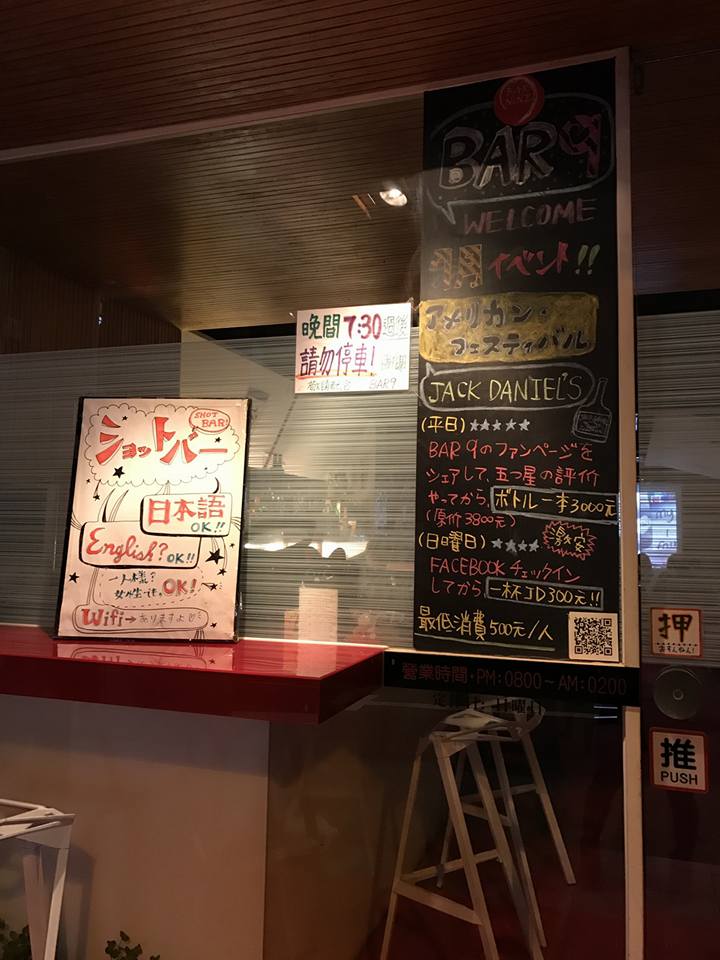 BAR
NINE
BAR 9
WELCOME
イベント!!
アメリカン・
フェスティバル
JACK DANIEL'S
(平日)★★★★★
BAR 9のファンページを
シェアして、五つ星の評価
やってから、ボトル一本3000元
(原价3800元)
激安
(日曜日)★★★★★
FACEBOOKチェックイン
してから、一杯JD300元!!
最低消費500元/人
營業時間・PM:0800~AM:0200
晚間7:30過後
請勿停車!
BAR9
SHOT
BAR!
ショットバー
日本語
OK!!
English?OK!!
OK!
Wifi→ありますよ
押
おすんやん!
推
PUSH